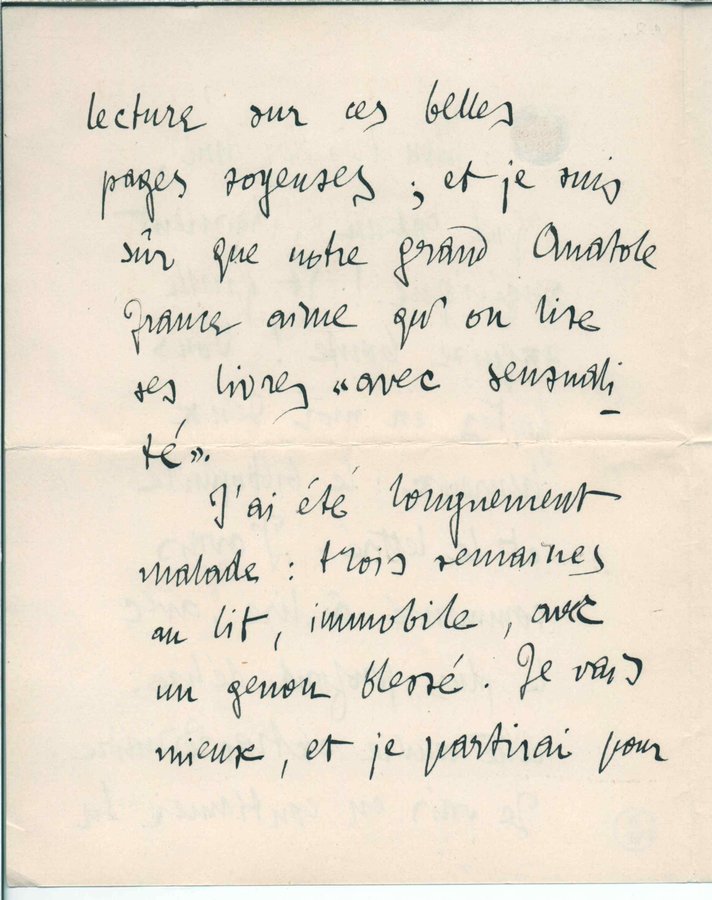 lecture sur ces belles
pages soyeuses ; et je suis
sûr que notre grand Anatole
France aime qu'on lise
ses livres «avec sensuali
té».
J'ai été longuement
malade : trois semaines
au lit, immobile, avec
un genou blessé. Je vais
mieux, et je partirai pour